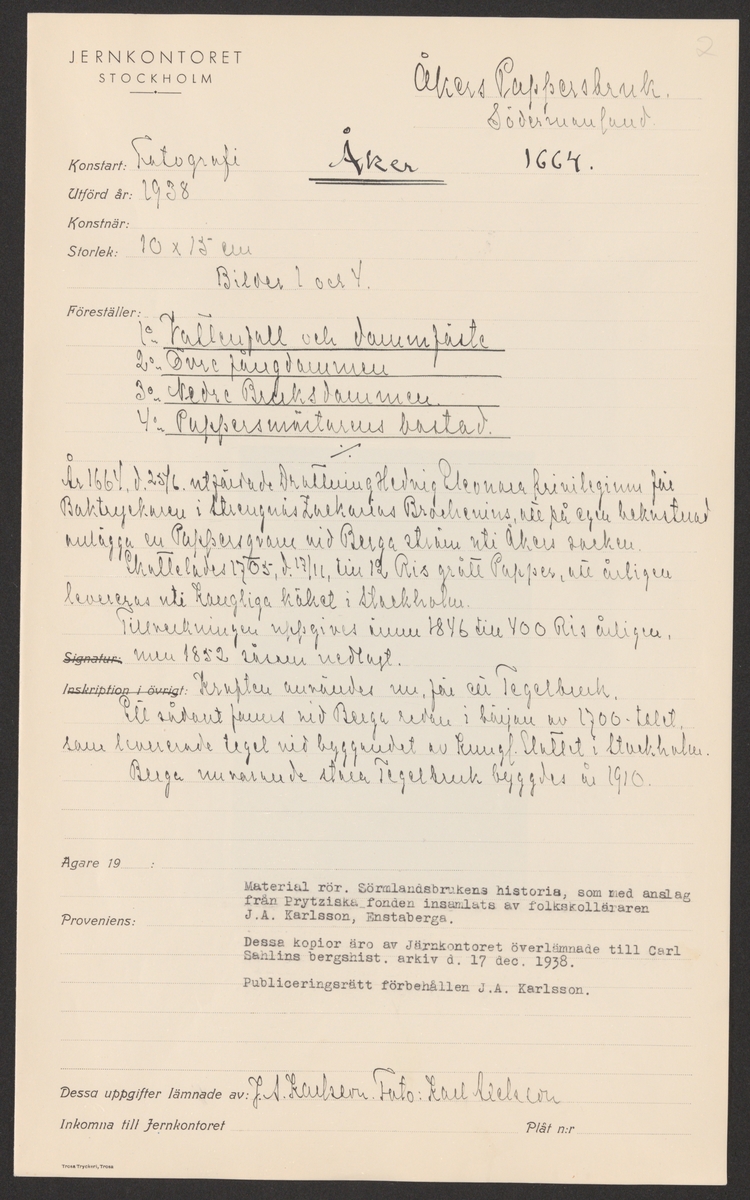 2
JERNKONTORET
STOCKHOLM
Åkers Pappersbruk.
Södermanland.
Konstart: Fotografi
Åker 1664.
Utförd år: 1938
Konstnär:
Storlek: 10 x 15 cm
Bilder 1 och 4.
Föreställer:
1o.. Vattenfall och dammfäste
2o.. Övre fångdammen
3o.. Nedre Bruksdammen.
4o.. Pappersmästarens bostad.
År 1664, d. 25/6. utfärdade Drottning Hedvig Eleonora privilegium för
Boktryckaren i Strengnäs Zackarias Brockenius, att på egen bekostnad
anlägga en Papperskvarn vid Berga ström uti Åkers socken.
Skattelades 1705, d. 17/11, till 12 Ris grått Papper, att årligen
levereras uti Kungliga köket i Stockholm.
Tillverkningen uppgives ännu 1846 till 400 Ris årligen,
Signatur: men 1852 såsom nedlagt.
Inskription i övrigt: Kraften användes nu, för ett Tegelbruk.
Ett sådant fanns vid Berga redan i början av 1700-talet,
som levererade tegel vid byggandet av Kungl. Slottet i Stockholm.
Berga nuvarande stora Tegelbruk byggdes år 1910.
Ägare 19 :
Material rör. Sörmlandsbrukens historia, som med anslag
från Prytziska fonden insamlats av folkskolläraren
Proveniens: J.A. Karlsson, Enstaberga.
Dessa kopior äro av Järnkontoret överlämnade till Carl
Sahlins bergshist. arkiv d. 17 dec. 1938.
Publiceringsrätt förbehållen J.A. Karlsson.
Dessa uppgifter lämnade av: J. A. Karlsson. Foto: Karl Axelsson
Inkomna till Jernkontoret Plåt n:r
Trosa Tryckeri, Trosa